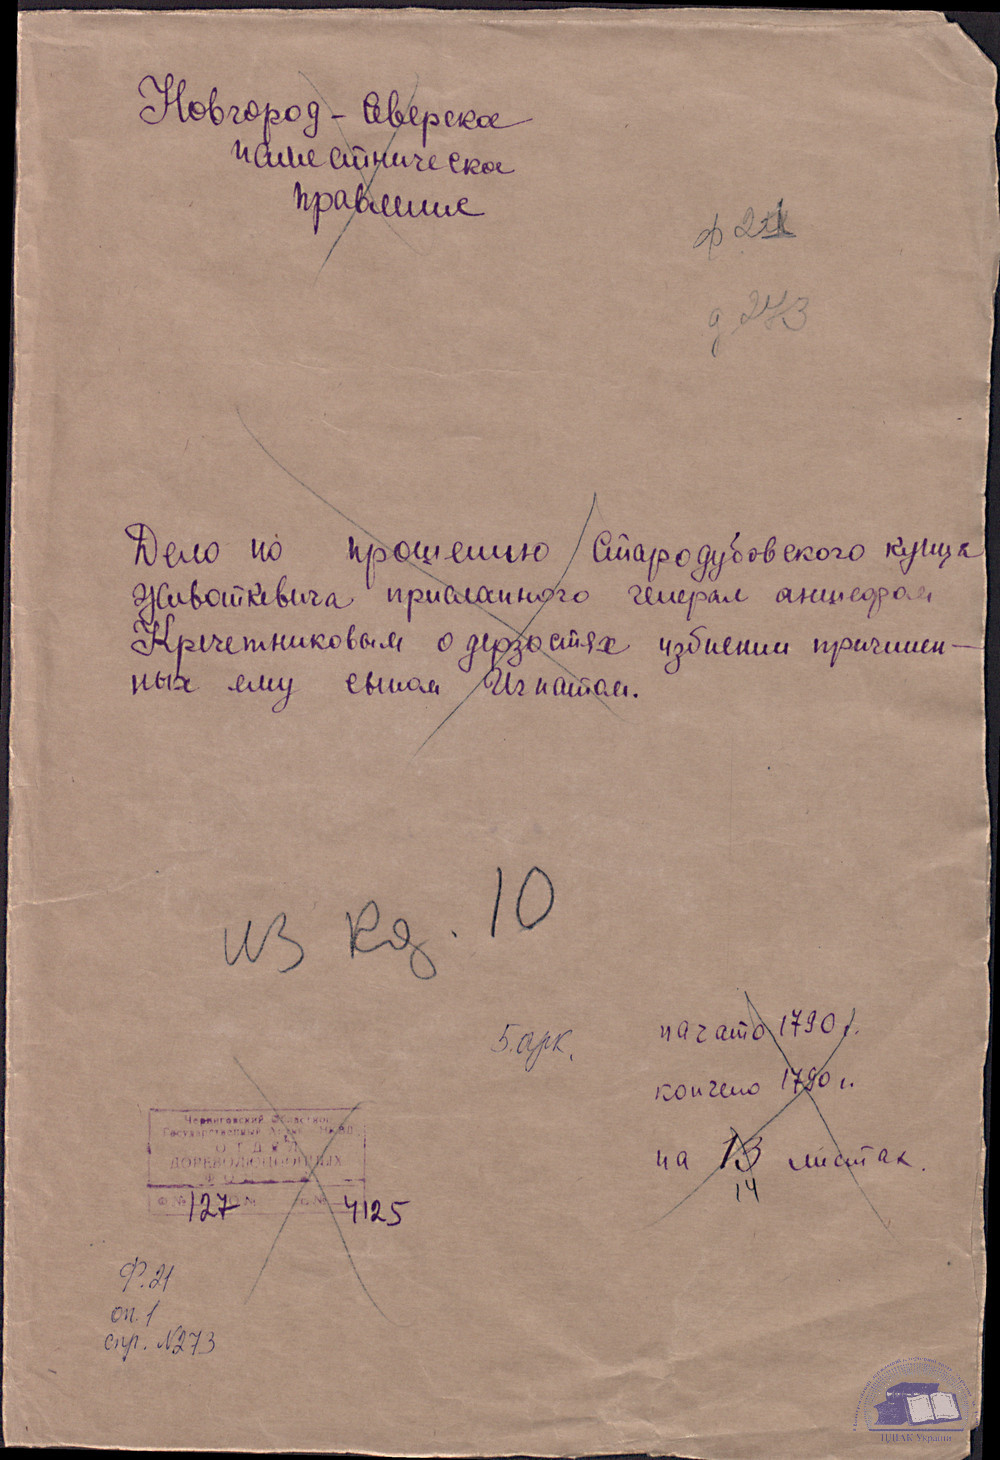 Новгород-Северское
наместническое
правление
ф 21
д 273
Дело по прошению Стародубовского купца
Животкевича присланного генерал аншефом
Кречетниковым о дерзостях избиении причинен-
ных ему сыном Игнатом.
из кд. 10
5 арк.
начато 1790 г.
кончено 1790 г.
на 13 листах.
14
Черниговский Областной
Государственный Архив
ОТДЕЛ
ДОРЕВОЛЮЦИОННЫХ
Ф № 127 № 4125
Ф. 21
оп. 1
спр. №273
ЦДІАК України